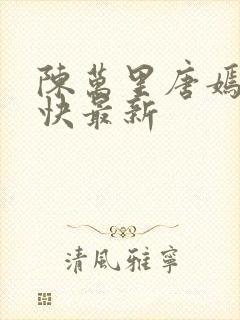 陳萬里唐嫣
快最新
清風雅寧